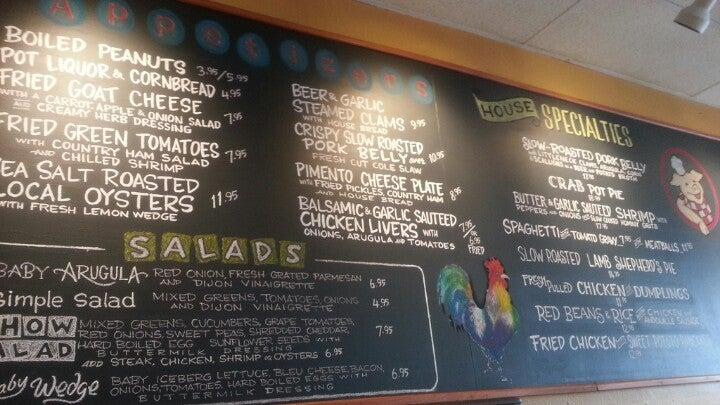 Appetizers
BOILED PEANUTS 3.95/5.95
POT LIQUOR & CORNBREAD 4.95
FRIED GOAT CHEESE
WITH A CARROT, APPLE & ONION SALAD
AND CREAMY HERB DRESSING 7.95
FRIED GREEN TOMATOES
WITH COUNTRY HAM SALAD
AND CHILLED SHRIMP 7.95
SEA SALT ROASTED
LOCAL OYSTERS 11.95
WITH FRESH LEMON WEDGE
BEER & GARLIC
STEAMED CLAMS 9.95
WITH HOUSE BREAD
CRISPY SLOW ROASTED
PORK BELLY OVER 10.95
FRESH CUT COLE SLAW
PIMENTO CHEESE PLATE
WITH FRIED PICKLES COUNTRY HAM
AND HOUSE BREAD 8.95
BALSAMIC & GARLIC SAUTEED
CHICKEN LIVERS WITH 7.95
ONIONS, ARUGULA AND TOMATOES 6.95 FRIED
SALADS
BABY ARUGULA RED ONION, FRESH GRATED PARMESAN
AND DIJON VINAIGRETTE 6.95
Simple Salad MIXED GREENS, TOMATOES, ONIONS
AND DIJON VINAIGRETTE 4.95
CHOW SALAD MIXED GREENS, CUCUMBERS, GRAPE TOMATOES,
RED ONIONS, SWEET PEAS, SHREDDED CHEDDAR,
HARD BOILED EGG SUNFLOWER SEEDS WITH
BUTTERMILK DRESSING 6.95
ADD STEAK, CHICKEN, SHRIMP OR OYSTERS 6.95
Baby Wedge BABY ICEBERG LETTUCE, BLEU CHEESE, BACON,
ONIONS, TOMATOES, HARD BOILED EGGS WITH 6.95
BUTTERMILK DRESSING
HOUSE SPECIALTIES
SLOW-ROASTED PORK BELLY
WITH LITTLENECK CLAMS, ARUGULA, CORN
& SCALLIONS IN A BEER BROTH
CRAB POT PIE
BUTTER & GARLIC SAUTEED SHRIMP WITH
PEPPERS AND ONIONS OVER SLOW COOKED HOMINY GRITS
SPAGHETTI WITH TOMATO GRAVY 7.95 WITH MEATBALLS
SLOW ROASTED LAMB SHEPHERD'S PIE
FRESH PULLED CHICKEN AND DUMPLINGS
RED BEANS & RICE WITH CHICKEN AND
ANDOUILLE SAUSAGE
FRIED CHICKEN SWEET POTATO